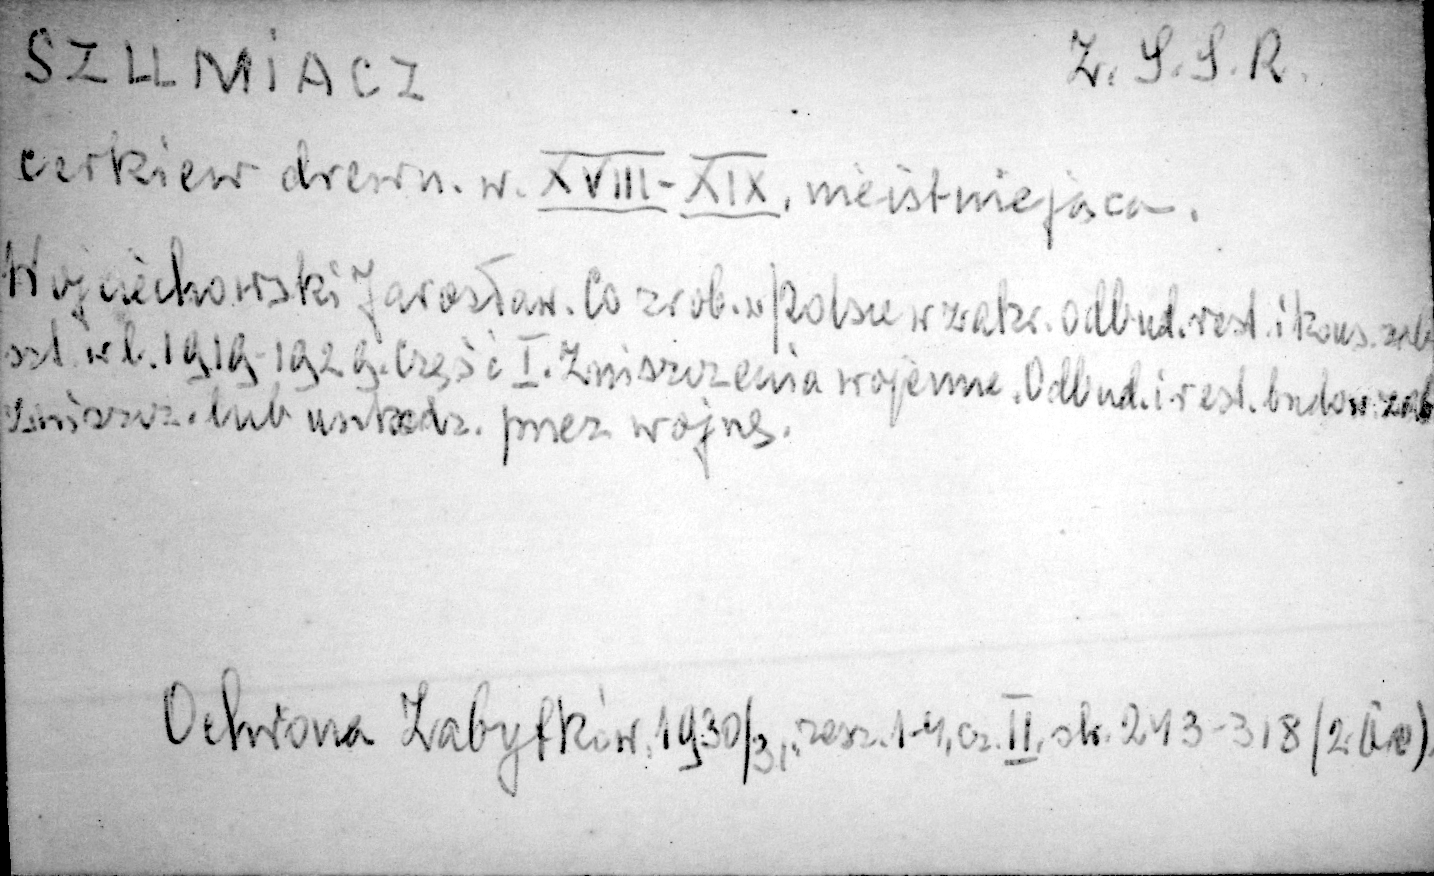 SZUMIACZ Z. S. S. R.
cerkiew drewn. w. XVIII-XIX, nieistniejąca.
Wojciechowski Jarosław. Co zrob. w Polsce w zakr. odbud. rest. i kons. zab
szt. w l. 1919-1929. Część I. Zniszczenia wojenne. Odbud. i rest. budow. zab
zniszcz. lub uszkodz. przez wojnę.
Ochrona Zabytków, 1930/3, zesz. 1-4, cz. II, str. 243-318